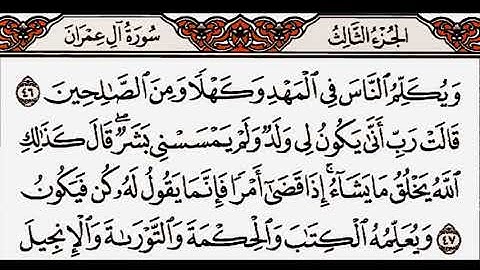 الجزء الثالث
سورة آل عمران
وَيُكَلِّمُ ٱلنَّاسَ فِي ٱلْمَهْدِ وَكَهْلًا وَمِنَ ٱلصَّٰلِحِينَ ٤٦
قَالَتْ رَبِّ أَنَّىٰ يَكُونُ لِي وَلَدٌ وَلَمْ يَمْسَسْنِي بَشَرٌۖ قَالَ كَذَٰلِكِ
ٱللَّهُ يَخْلُقُ مَا يَشَآءُۚ إِذَا قَضَىٰٓ أَمْرًا فَإِنَّمَا يَقُولُ لَهُۥ كُن فَيَكُونُ
٤٧ وَيُعَلِّمُهُ ٱلْكِتَٰبَ وَٱلْحِكْمَةَ وَٱلتَّوْرَىٰةَ وَٱلْإِنجِيلَ